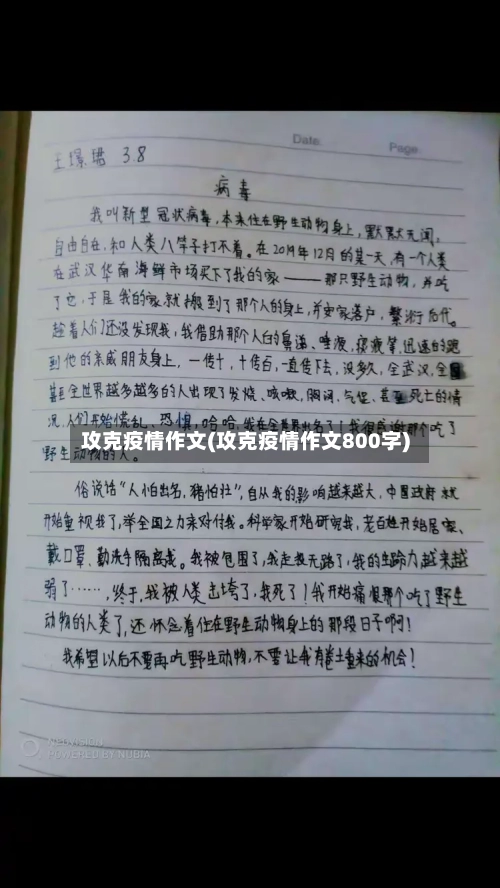 Date Page
王璟珺 3.8
病毒
我叫新型冠状病毒,本来住在野生动物身上,默默无闻,
自由自在,和人类八竿子打不着。在2019年12月的某一天,有一个人类
在武汉华南海鲜市场买下了我的家——那只野生动物,并吃
了它,于是我的家就搬到了那个人的身上,并安家落户,繁衍后代。
趁着人们还没发现我,我借助那个人的鼻涕、唾液、痰液等,迅速的跑
到他的亲戚朋友身上,一传十,十传百,一直传下去,没多久,全武汉,全国
甚至全世界越多越多的人出现了发烧、咳嗽,胸闷,气促,甚至死亡的情
况,人们开始慌乱、恐惧,哈哈,我在全世界出名了!我很感谢那个吃了
攻克疫情作文(攻克疫情作文800字)
野生动物的人。
俗说话“人怕出名,猪怕壮”,自从我的影响越来越大,中国政府就
开始重视我了,举全国之力来对付我。科学家开始研究我,老百姓开始居家、
戴口罩、勤洗手隔离我。我被包围了,我走投无路了,我的生命力越来越
弱了……,终于,我被人类击垮了,我死了!我开始痛恨那个吃了野生
动物的人类了,还怀念着住在野生动物身上的那段日子啊!
我希望以后不要再吃野生动物,不要让我有卷土重来的机会!
POWERED BY NUBIA